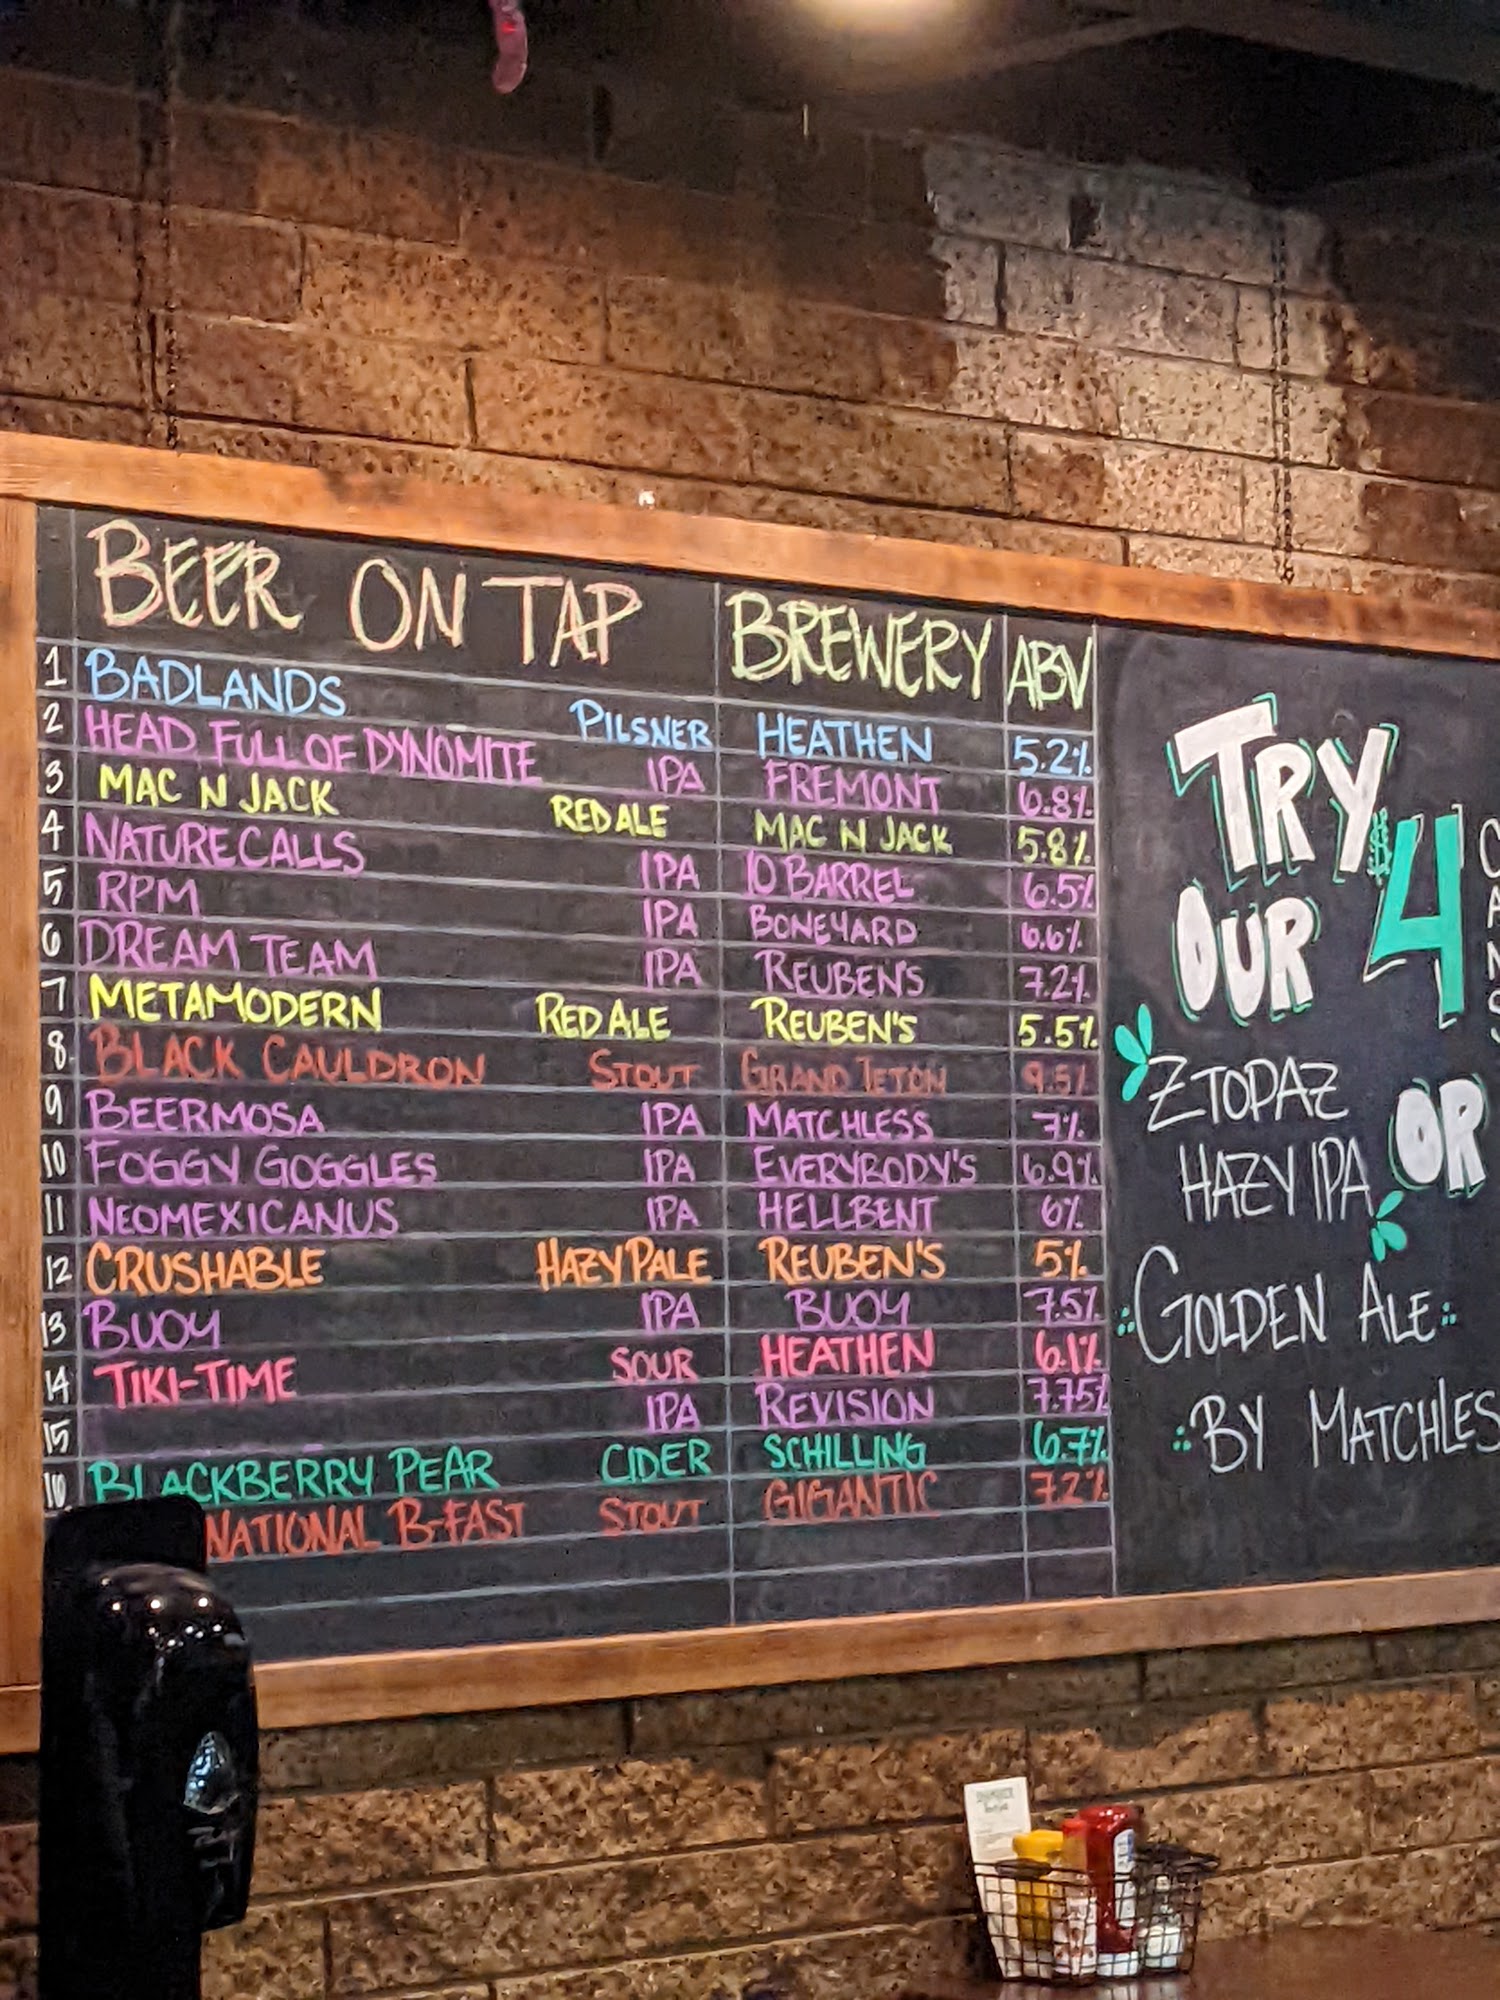 BEER ON TAP BREWERY ABV
1 BADLANDS PILSNER HEATHEN 5.2%
2 HEAD FULL OF DYNOMITE IPA FREMONT 6.8%
3 MAC N JACK RED ALE MAC N JACK 5.8%
4 NATURE CALLS IPA 10 BARREL 6.5%
5 RPM IPA BONEYARD 6.6%
6 DREAM TEAM IPA REUBEN'S 7.2%
7 METAMODERN RED ALE REUBEN'S 5.5%
8 BLACK CAULDRON STOUT GRAND TETON 9.5%
9 BEERMOSA IPA MATCHLESS 7%
10 FOGGY GOGGLES IPA EVERYBODY'S 6.9%
11 NEOMEXICANUS IPA HELLBENT 6%
12 CRUSHABLE HAZY PALE REUBEN'S 5%
13 BUOY IPA BUOY 7.5%
14 TIKI-TIME SOUR HEATHEN 6.1%
15 IPA REVISION 7.75%
16 BLACKBERRY PEAR CIDER SCHILLING 6.7%
NATIONAL B-FAST STOUT GIGANTIC 7.2%
TRY
OUR 4
CANS
ZTOPAZ
HAZY IPA OR
GOLDEN ALE
BY MATCHLES